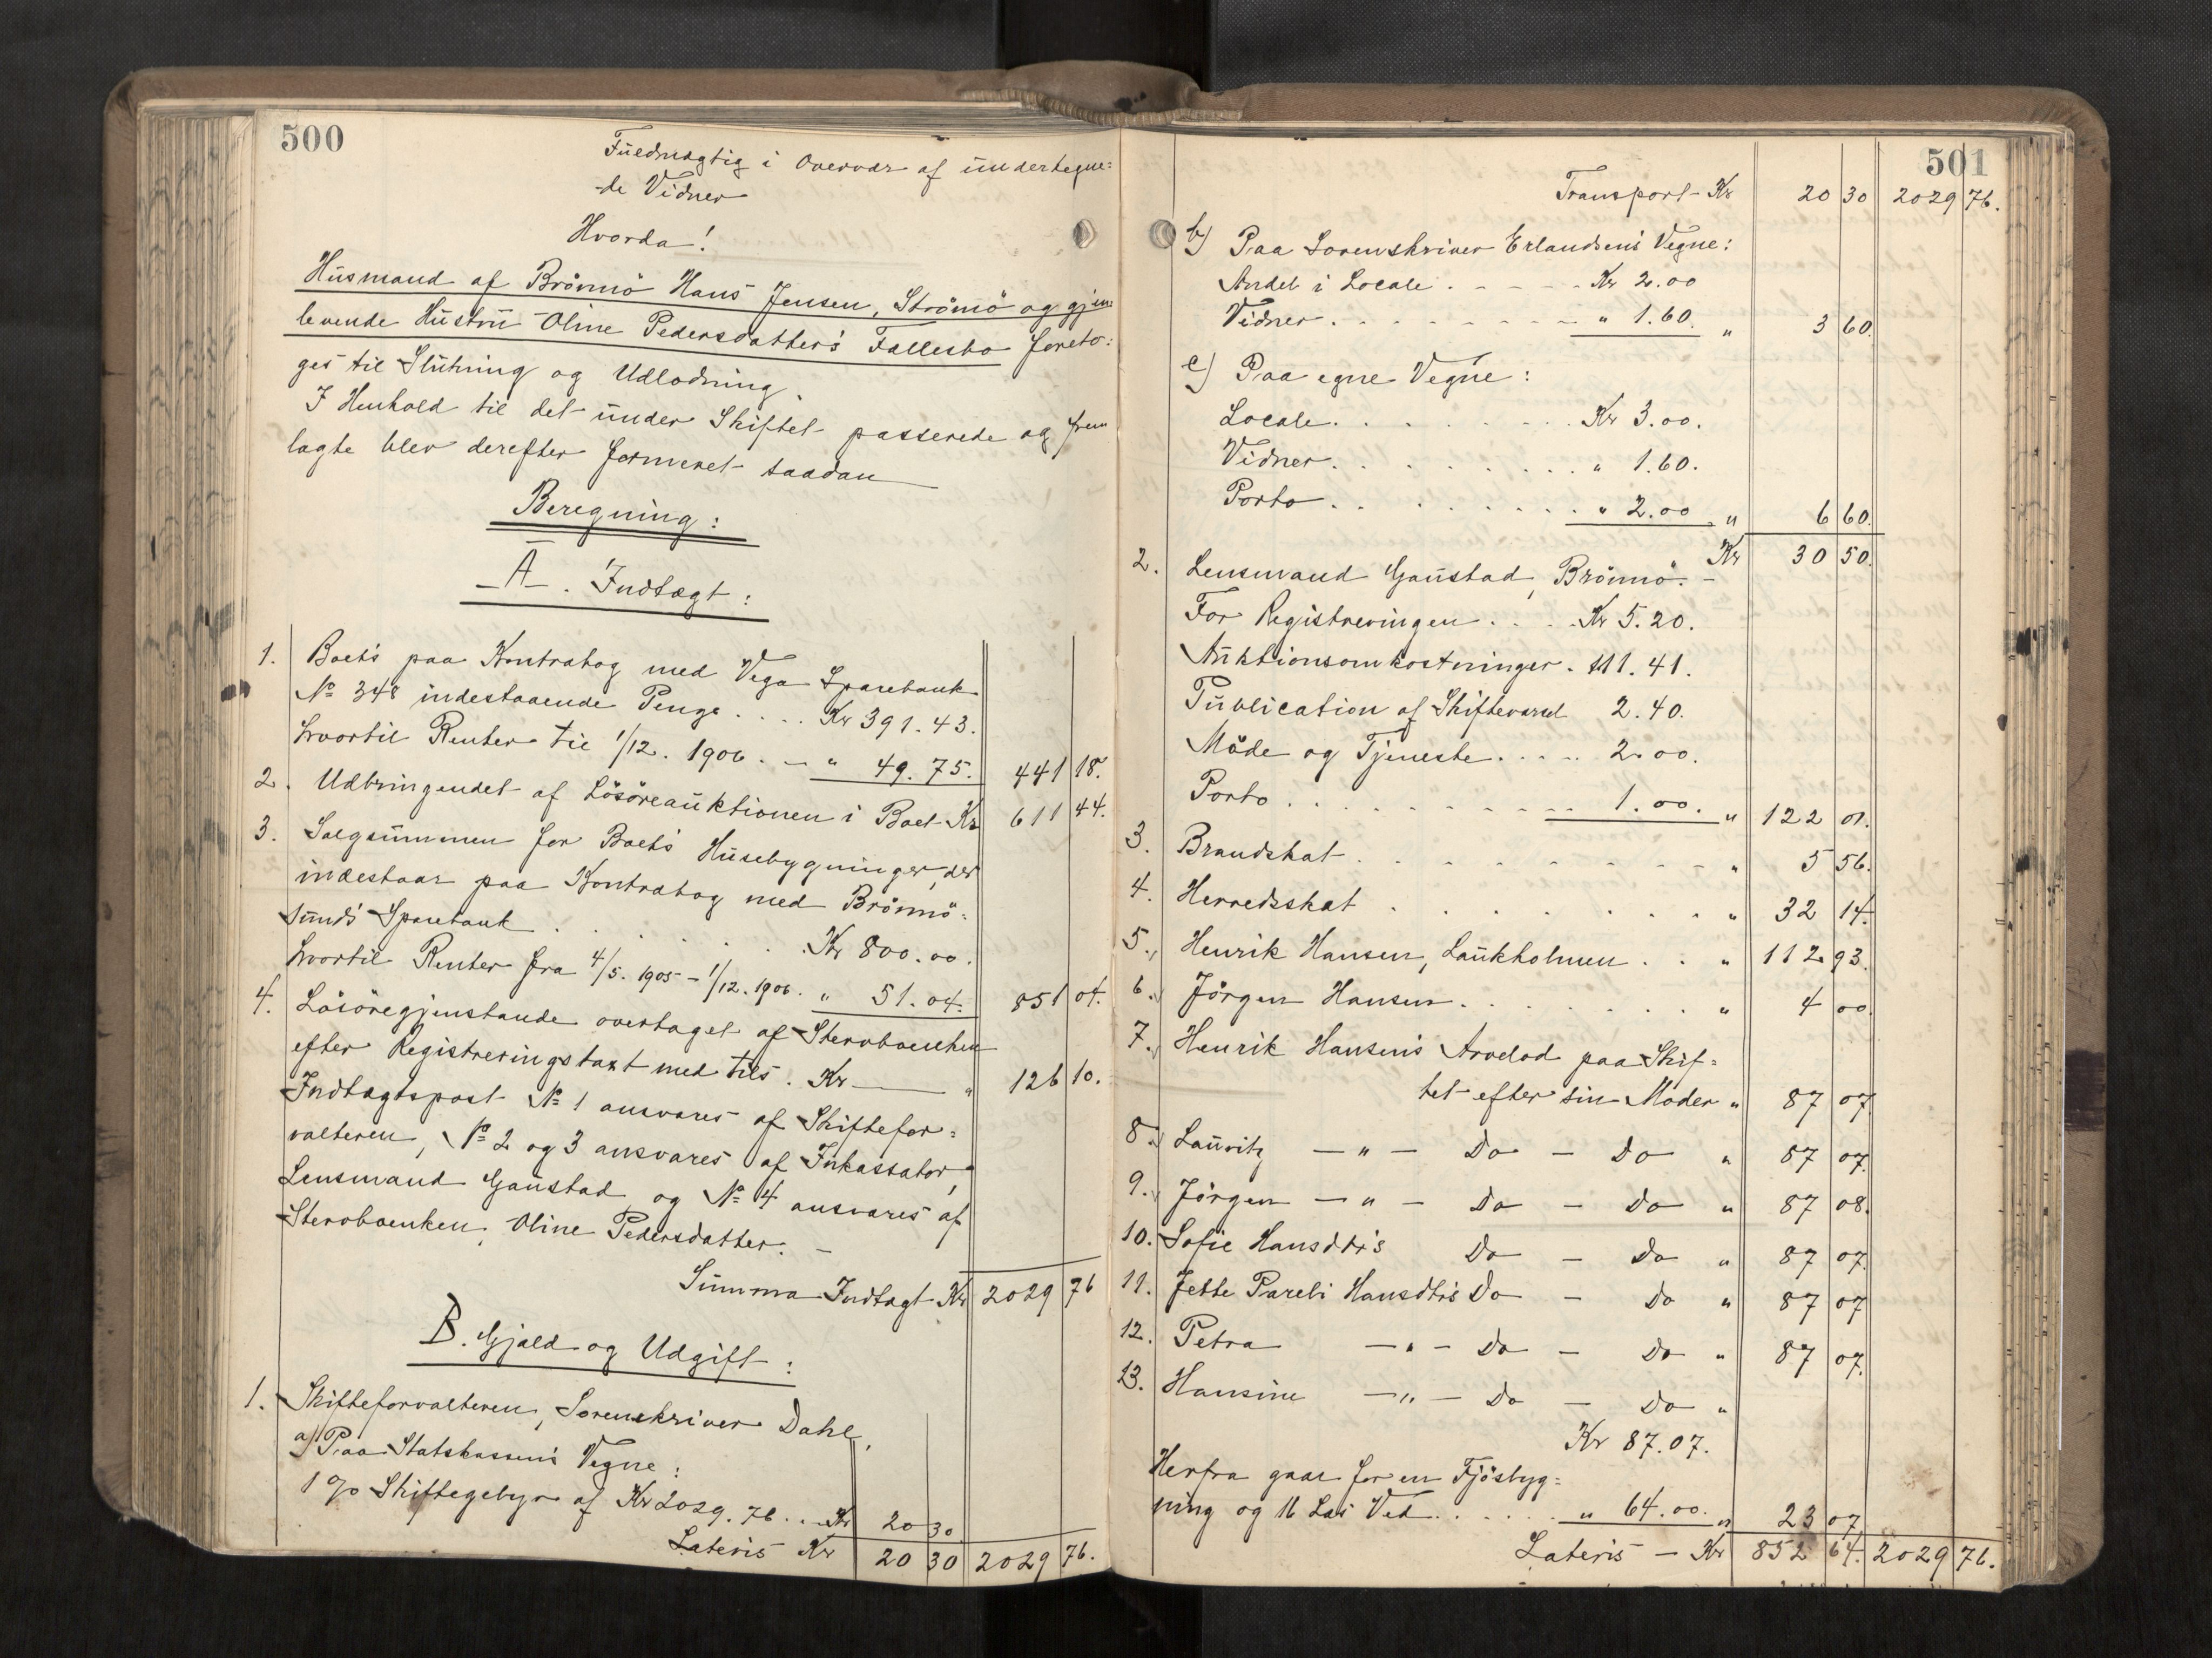 500
Fuldmægtig i Overvær af undertegne=
de Vidner
Hvorda!
Husmand af Brönnö Hans Jensen, Strömö og gjen=
levende Hustru Oline Pedersdatter's Fællesbo foreto=
ges til Slutning og Udlodning.
I Henhold til det under Skiftet passerede og frem
lagte blev derefter formeret saadan
Beregning:
A. Indtægt:
1. Boets paa Kontrabog med Vega Sparebank
No 348 indestaaende Penge .... Kr 391.43.
hvortil Renter til 1/12. 1906. - " 49.75. 441 18.
2. Udbringendet af Lösöreauktionen i Boet Kr 611 44.
3. Salgsummen for Boets Husebygninger, der
indestaar paa Kontrabog med Brönnö=
sunds Sparebank . . . . . . Kr 800.00.
hvortil Renter fra 4/5. 1905 - 1/12. 1906. " 51.04. 851 04.
4. Lösöregjenstande overtaget af Stervboenken
efter Registreringstaxt med tils. Kr " 126 10.
Indtægtspost No 1 ansvares af Skiftefor=
valteren, No 2 og 3 ansvares af Inkassator,
Lensmand Gaustad og No 4 ansvares af
Stervboenken, Oline Pedersdatter. -
Summa Indtægt Kr 2029 76
B. Gjæld og Udgift:
1. Skifteforvalteren, Sorenskriver Dahl,
a) Paa Statskassens Vegne:
1 % Skiftegebyr af Kr 2029.76... Kr 20 30
Lateris Kr 20 30 2029 76.
501
Transport Kr 20 30 2029 76.
b) Paa Sorenskriver Erlandsens Vegne:
Andel i Locale . - - - - Kr 2.00
Vidner . . - - - - - - " 1.60. " 3 60.
c) Paa egne Vegne:
Locale . . . . . . . . Kr 3.00.
Vidner . . . . . . . . " 1.60.
Porto . . . . . . . . " 2.00 " 6 60.
Kr 30 50.
2. Lensmand Gaustad, Brönnö. -
For Registreringen . . . . Kr 5.20.
Auktionsomkostninger . 111.41.
Publication af Skiftevard 2.40.
Möde og Tjeneste . . . . . 2.00.
Porto . . . . . . . . . 1.00. " 122 01.
3. Brandskat . . - - - - - " 5 56.
4. Herredsskat . . . . . . . " 32 14.
5. Henrik Hansen, Laukholmen . . " 112 93.
6. Jörgen Hansen . . . . . . " 4 00
7. Henrik Hansens Arvelod paa Skif=
tet efter sin Moder " 87 07
8. Lauritz - " - Do - Do " 87 07.
9. Jörgen - " - Do - Do " 87 08.
10. Sofie Hansdtr's Do - Do " 87 07.
11. Jette Pareli Hansdtr's Do - Do " 87 07
12. Petra - " - Do - Do " 87 07.
13. Hansine - " - Do - Do "
Kr 87.07.
Herfra gaar for en Fjösbyg=
ning og 16 Læs Ved . . . . . " 64.00. " 23 07
Lateris - Kr 852 64. 2029 76.